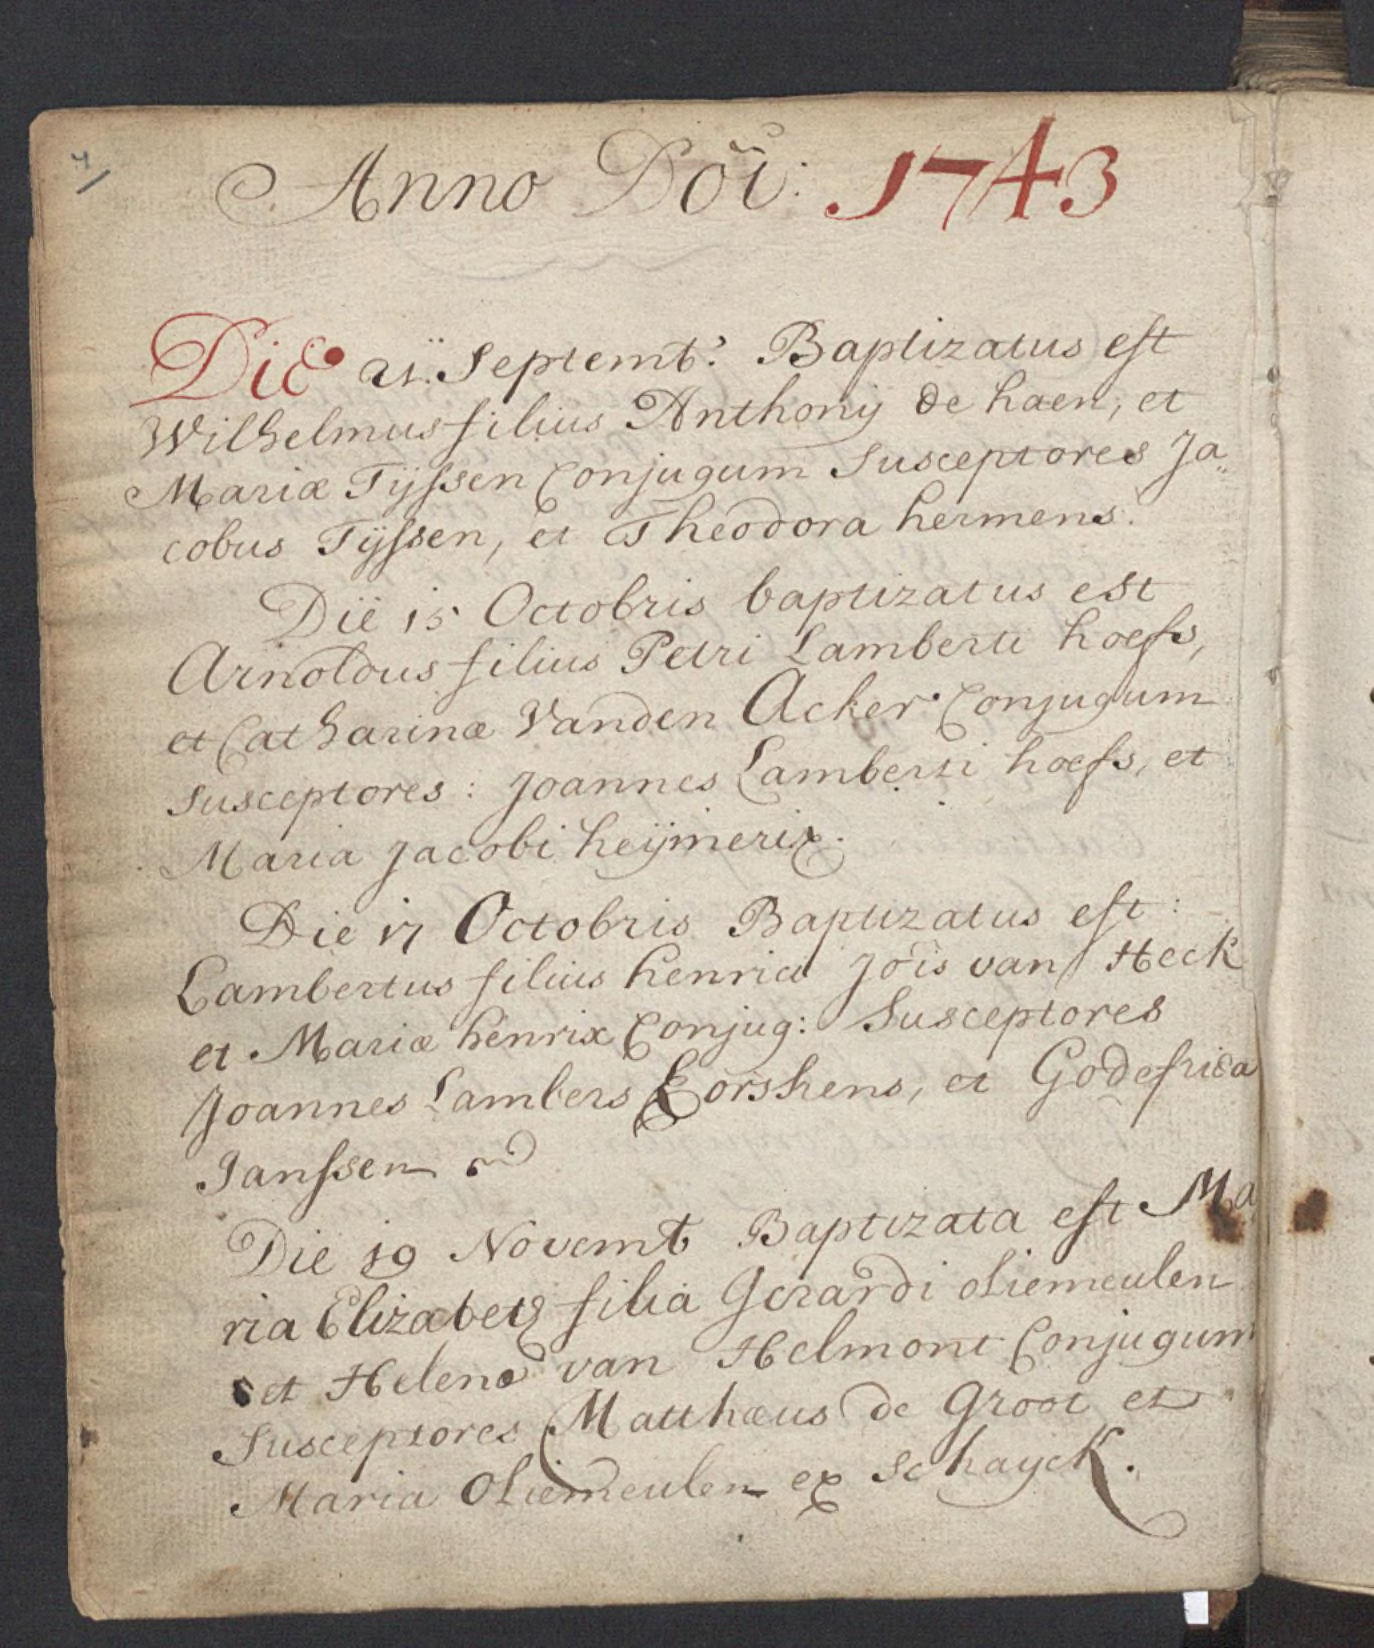 4
Anno Dõi: 1743
Die 21. Septemb: Baptizatus est
Wilhelmus filius Anthonij de haen, et
Mariæ Tijssen Conjugum Susceptores Ja„
cobus Tijssen, et Theodora hermens.
Die 15 Octobris baptizatus est
Arnoldus filius Petri Lamberti hoefs,
et Catharinæ Vanden Acker Conjugum
Susceptores: Joannes Lamberti hoefs, et
Maria Jacobi heijmerix.
Die 17 Octobris Baptizatus est:
Lambertus filius henrici Jois van Heck
et Mariæ henrix Conjug: Susceptores
Joannes Lambers Corshens, et Godefrida
Janssen
Die 19 Novemb Baptizata est Ma
ria Elizabeth filia Gerardi oliemeulen
et Helenæ van Helmont Conjugum
Susceptores Matthæus de Groot et
Maria Oliemeulen ex Schayck.